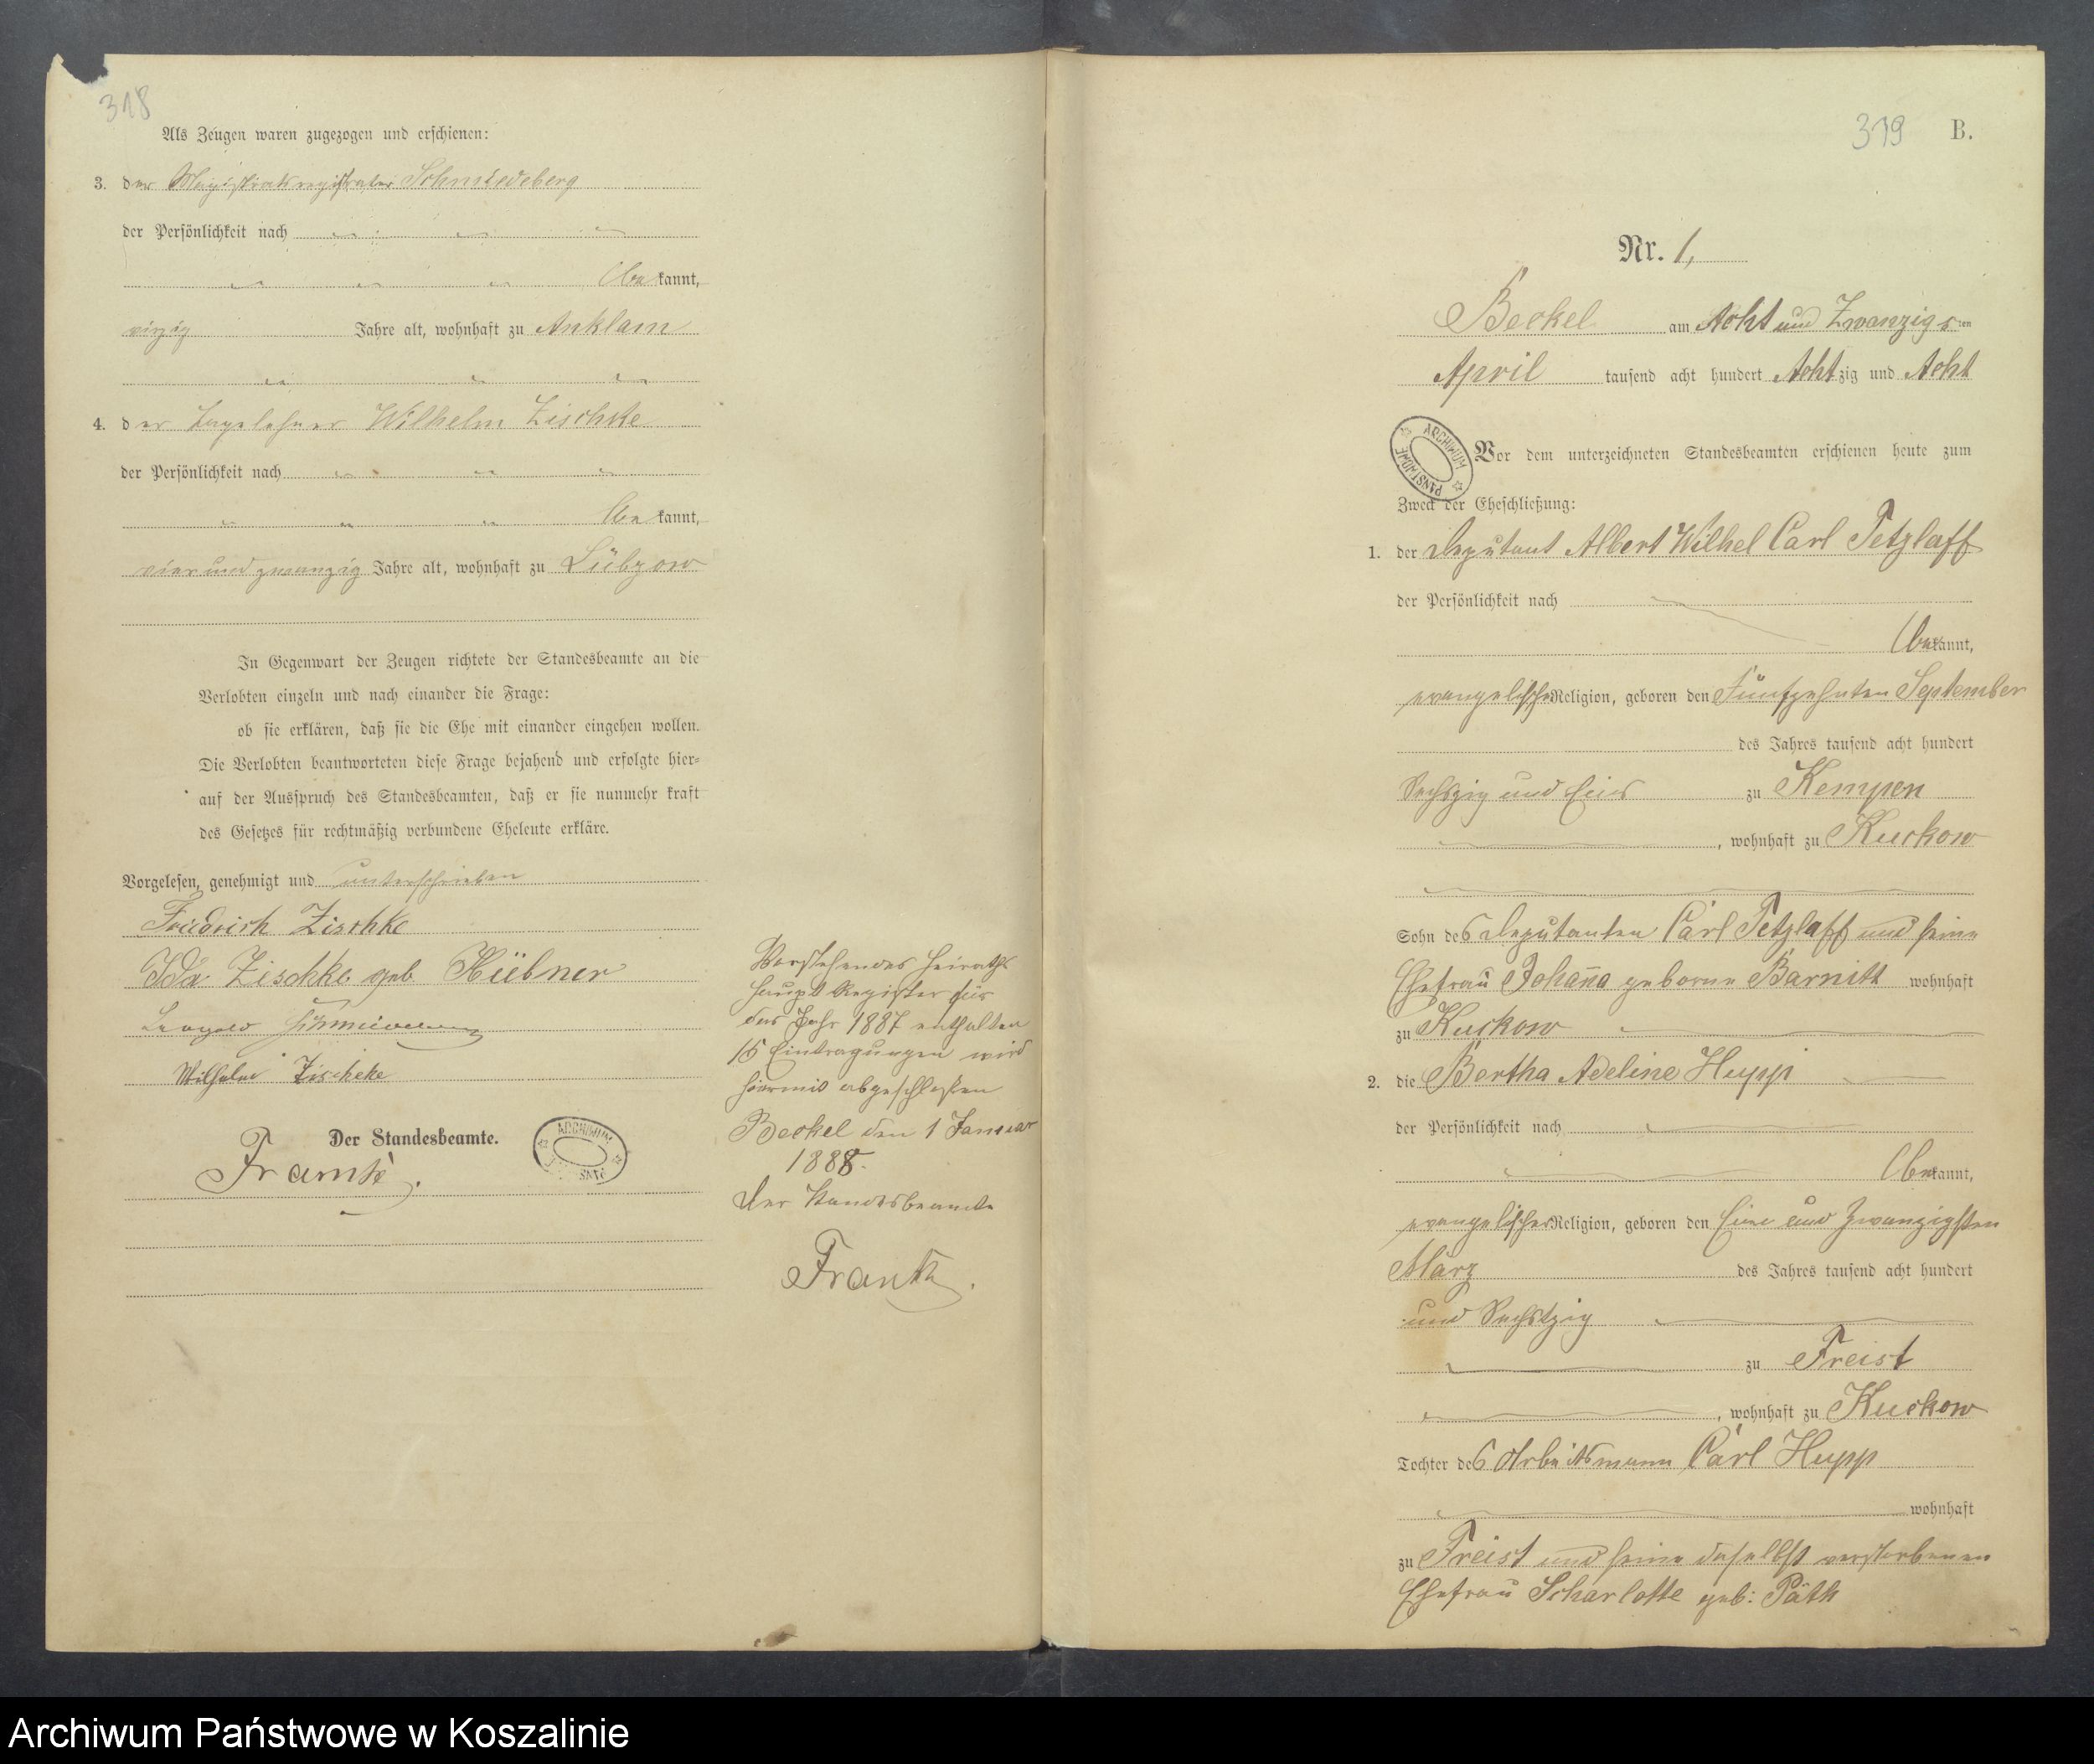 318
Als Zeugen waren zugezogen und erschienen:
3. der Magistratsregistrator Schmiedeberg
der Persönlichkeit nach
bekannt,
vierzig Jahre alt, wohnhaft zu Anklam
4. der Tagelöhner Wilhelm Zischke
der Persönlichkeit nach
bekannt,
vier und zwanzig Jahre alt, wohnhaft zu Lübzow
In Gegenwart der Zeugen richtete der Standesbeamte an die
Verlobten einzeln und nach einander die Frage:
ob sie erklären, daß sie die Ehe mit einander eingehen wollen.
Die Verlobten beantworteten diese Frage bejahend und erfolgte hier-
auf der Ausspruch des Standesbeamten, daß er sie nunmehr kraft
des Gesetzes für rechtmäßig verbundene Eheleute erkläre.
Vorgelesen, genehmigt und unterschrieben
Friedrich Zischke
Ida Zischke geb Hübner
Leopold Schmiedeberg
Wilhelm Zischke
Der Standesbeamte.
ARCHIWUM
Vorstehendes Heiraths
Haupt Register für
das Jahr 1887 enthalten
15 Eintragungen wird
hiermit abgeschlossen
Beckel den 1 Januar
1888.
Der Standesbeamte
Frantz.
319 B.
Nr. 1,
Beckel am Acht und Zwanzigsten
April tausend acht hundert Achtzig und Acht
ARCHIWUM PAŃSTWOWE
Vor dem unterzeichneten Standesbeamten erschienen heute zum
Zweck der Eheschließung:
1. der Deputant Albert Wilhel Carl Tetzlaff
der Persönlichkeit nach
bekannt,
evangelischer Religion, geboren den Fünfzehnten September
des Jahres tausend acht hundert
Sechszig und Eins zu Kempen
, wohnhaft zu Kuckow
Sohn des Deputanten Carl Tetzlaff und seine
Ehefrau Johanna geborne Barnitt wohnhaft
zu Kuckow
2. die Bertha Adeline Hupp
der Persönlichkeit nach
bekannt,
evangelischer Religion, geboren den Eine und Zwanzigsten
März des Jahres tausend acht hundert
und Sechstzig
zu Freist
, wohnhaft zu Kuckow
Tochter des Arbeitsmann Carl Hupp
wohnhaft
zu Freist und seine daselbst verstorbenen
Ehefrau Scharlotte geb: Päth
Archiwum Państwowe w Koszalinie